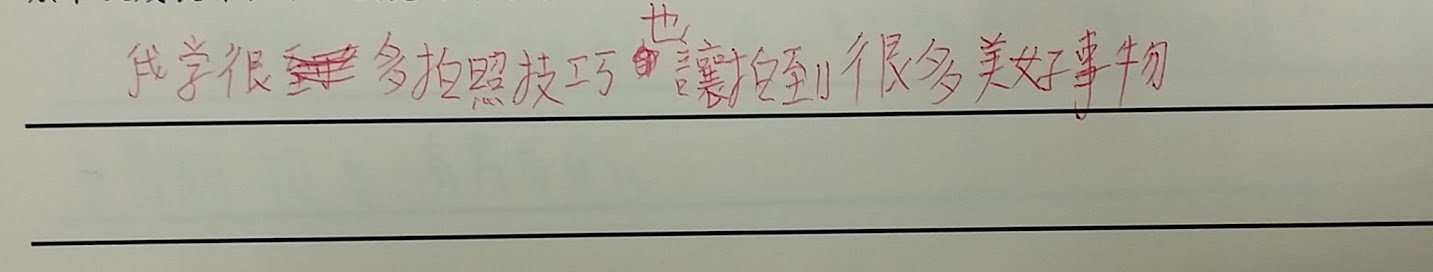 我学很多拍照技巧也讓拍到很多美好事物